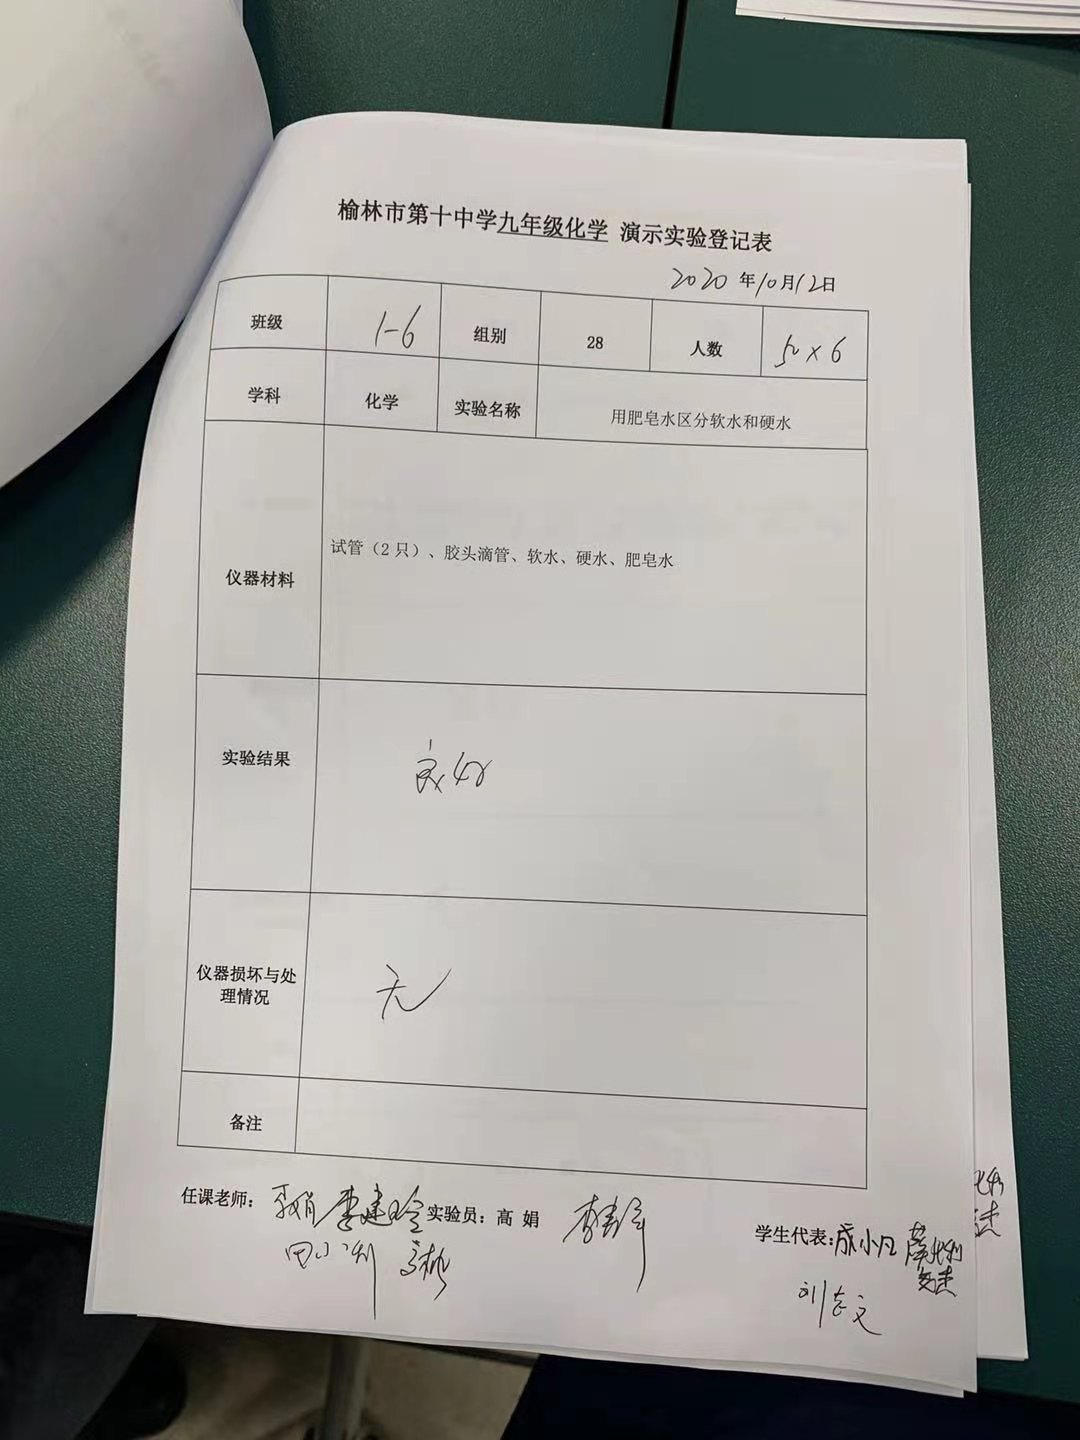 榆林市第十中学九年级化学 演示实验登记表
2020 年10月12日
班级 1-6 组别 28 人数 50×6
学科 化学 实验名称 用肥皂水区分软水和硬水
仪器材料 试管（2只）、胶头滴管、软水、硬水、肥皂水
实验结果 良好
仪器损坏与处
理情况 无
备注
任课老师： 李建玲 实验员：高 娟 学生代表：成小凡
刘志文